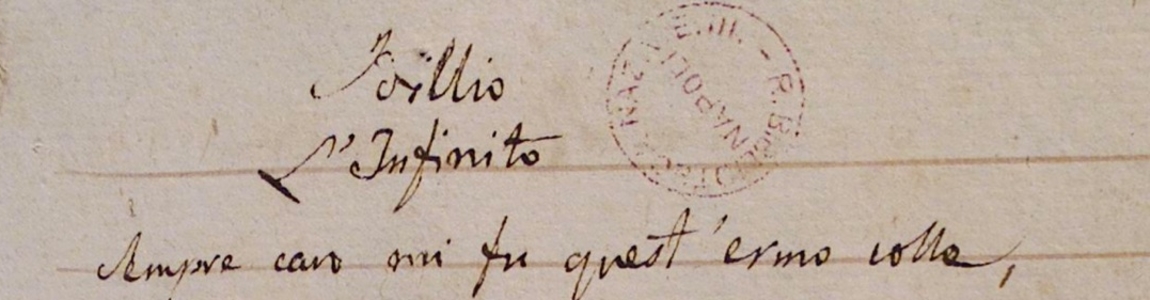 Idillio
L'Infinito
Sempre caro mi fu quest'ermo colle,
R. BIBLIOTECA NAZ. V. E. III. -
NAPOLI